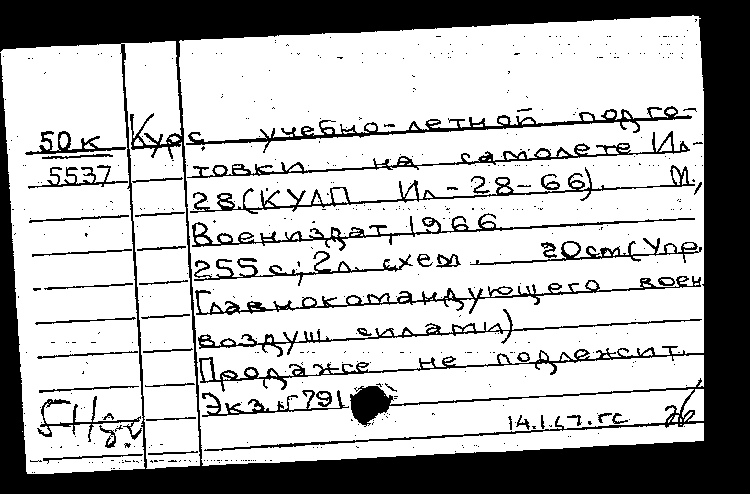 50к Курс учебно-летной подго-
5537 товки на самолете Ил-
28.(КУЛП Ил-28-66). М.,
Воениздат, 1966.
255 с.; 2л. схем. 20см.(Упр.
Главнокомандующего воен.
воздуш. силами)
Продаже не подлежит.
Экз. № 791
14.1.67.гс